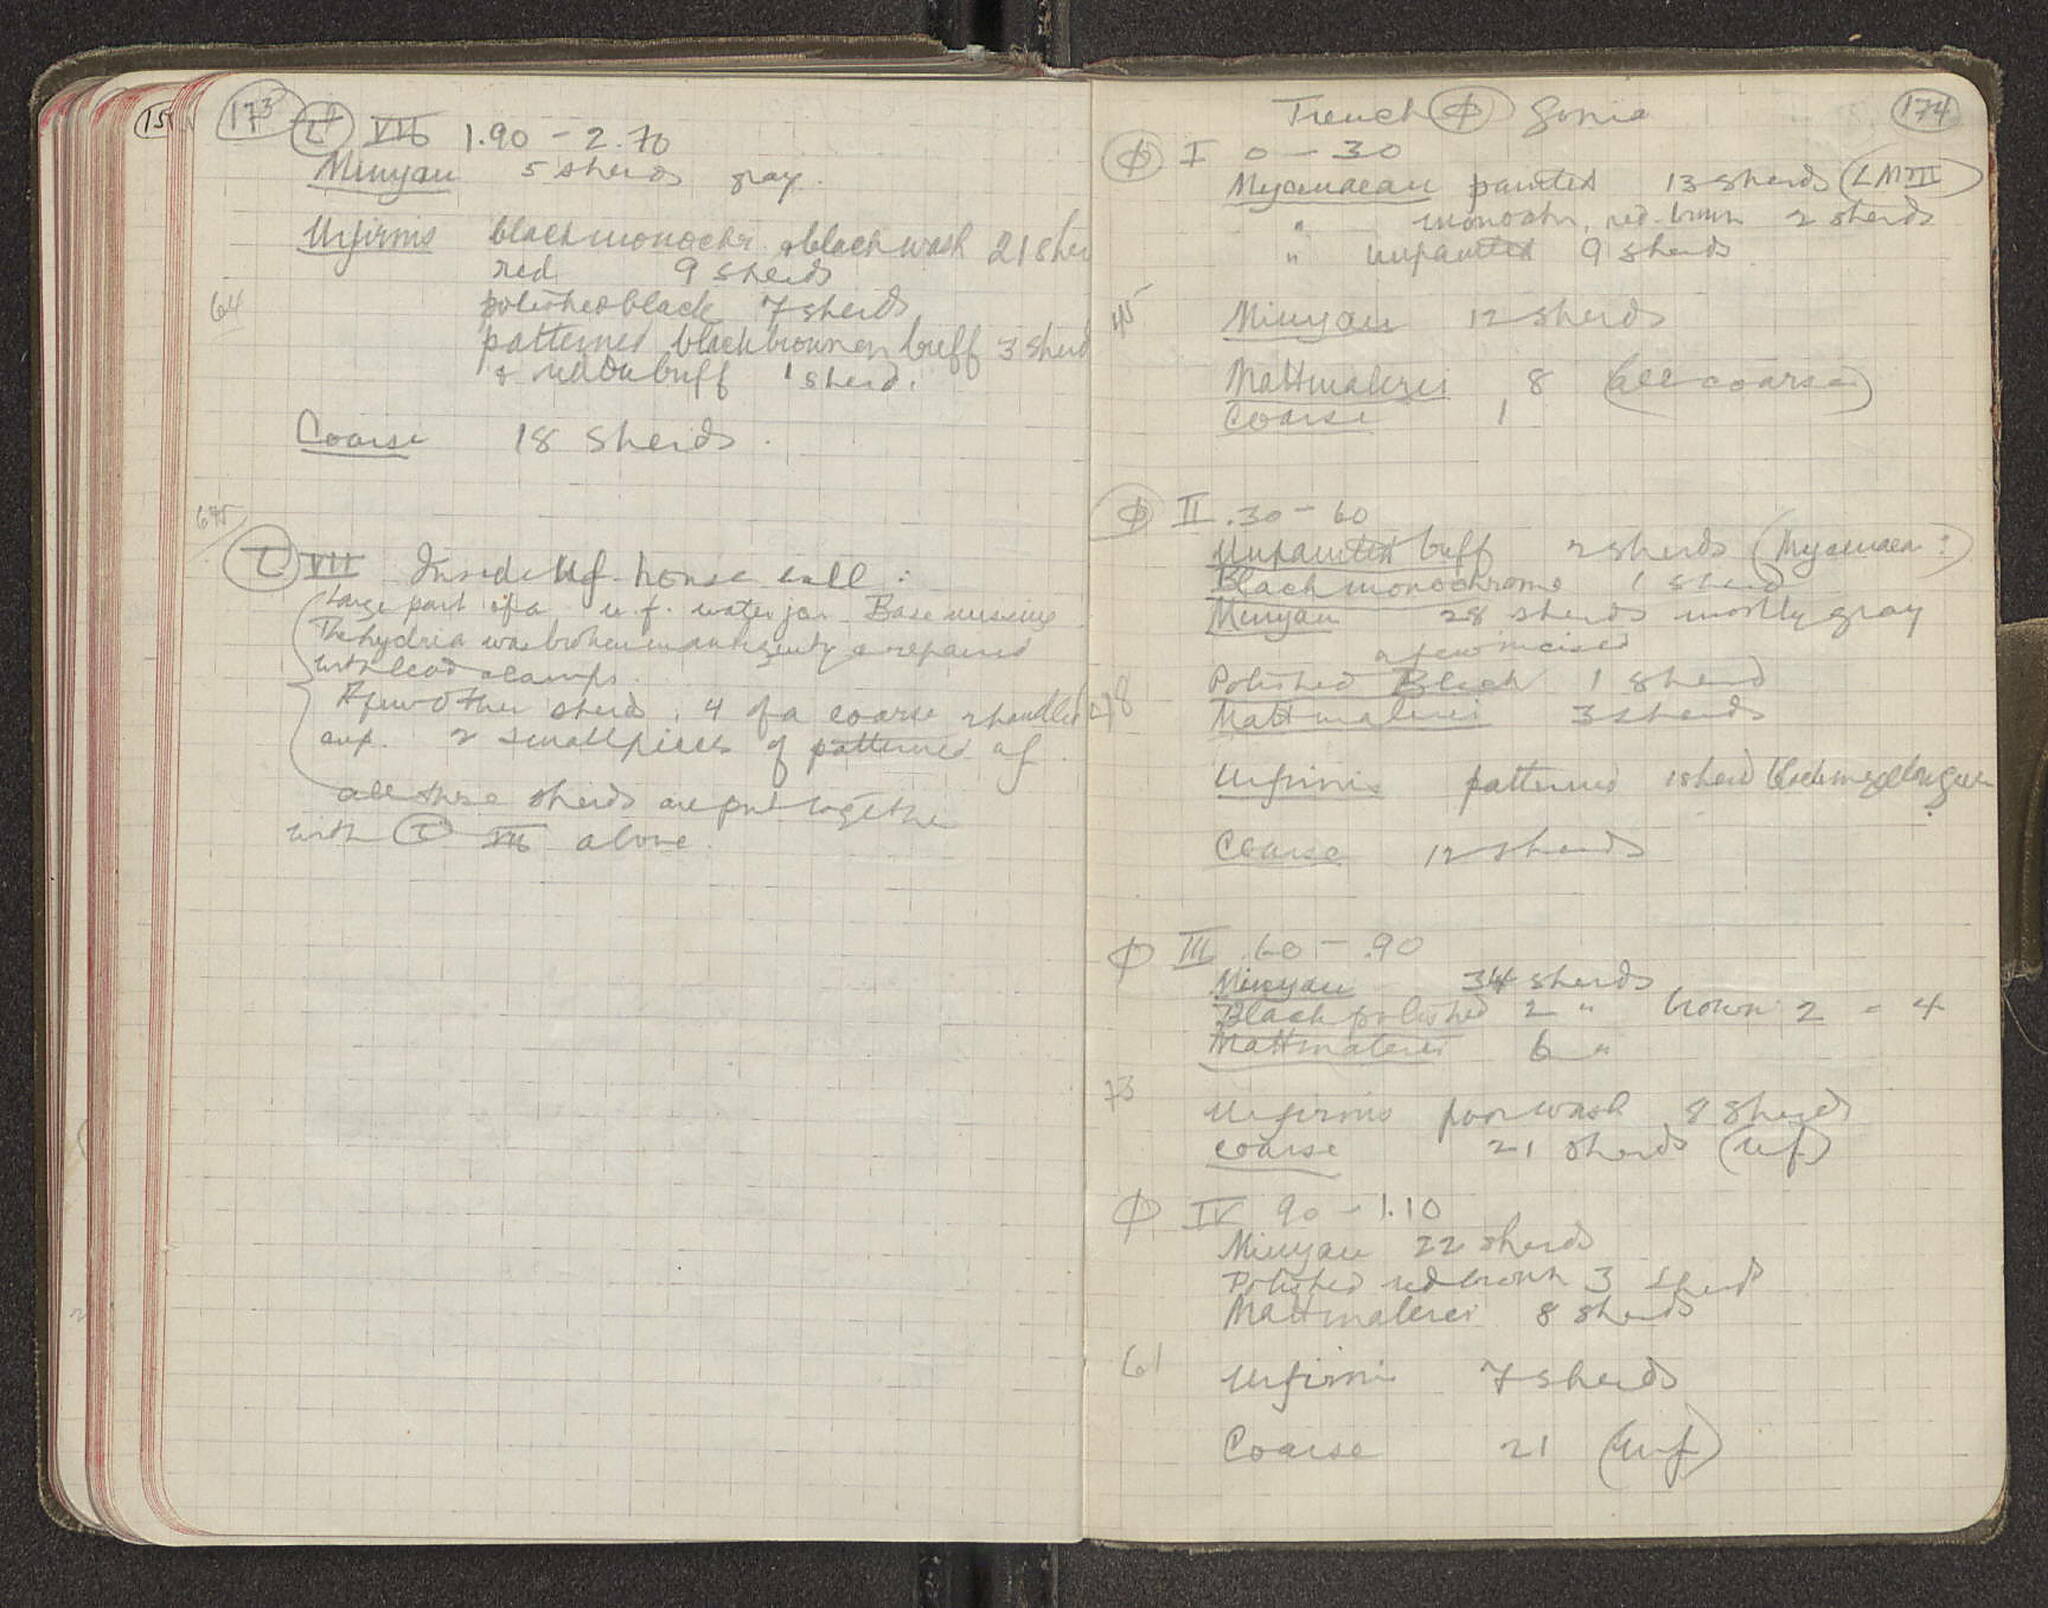 173
VIIb 1.90 - 2.70
Minyan 5 sherds gray.
Urfirnis black monochr. & black wash 21 sher
red 9 sherds
64
polished black 7 sherds
patterned black brown on buff 3 sherd
& red on buff 1 sherd.
Coarse 18 sherds.
VII Inside Uf. house wall:
Large part of a u.f. water jar. Base missing.
The hydria was broken in antiquity & repaired
with lead clamps.
A few other sherds, 4 of a coarse 2 handled
cup. 2 small pieces of patterned uf.
all these sherds are put together
with VIIb above.
174
Trench Φ Gonia
Φ I 0 - 30
Mycenaean painted 13 sherds (LMIII)
" monochr. red-brown 2 sherds
" unpainted 9 sherds
45
Minyan 12 sherds
Mattmalerei 8 (all coarse)
Coarse 1
Φ II .30 - 60
Unpainted buff 2 sherds (Mycenaean?)
Black monochrome 1 sherd
Minyan 28 sherds mostly gray
a few incised
Polished Black 1 sherd
48
Mattmalerei 3 sherds
Urfirnis patterned 1 sherd
Coarse 12 sherds
Φ III .60 - .90
Minyan 34 sherds
Black polished 2 " brown 2 = 4
Mattmalerei 6 "
73
Urfirnis poor wash 8 sherds
Coarse 21 sherds (uf)
Φ IV 90 - 1.10
Minyan 22 sherds
Polished red brown 3 sherds
Mattmalerei 8 sherds
61
Urfirnis 7 sherds
Coarse 21 (urf)